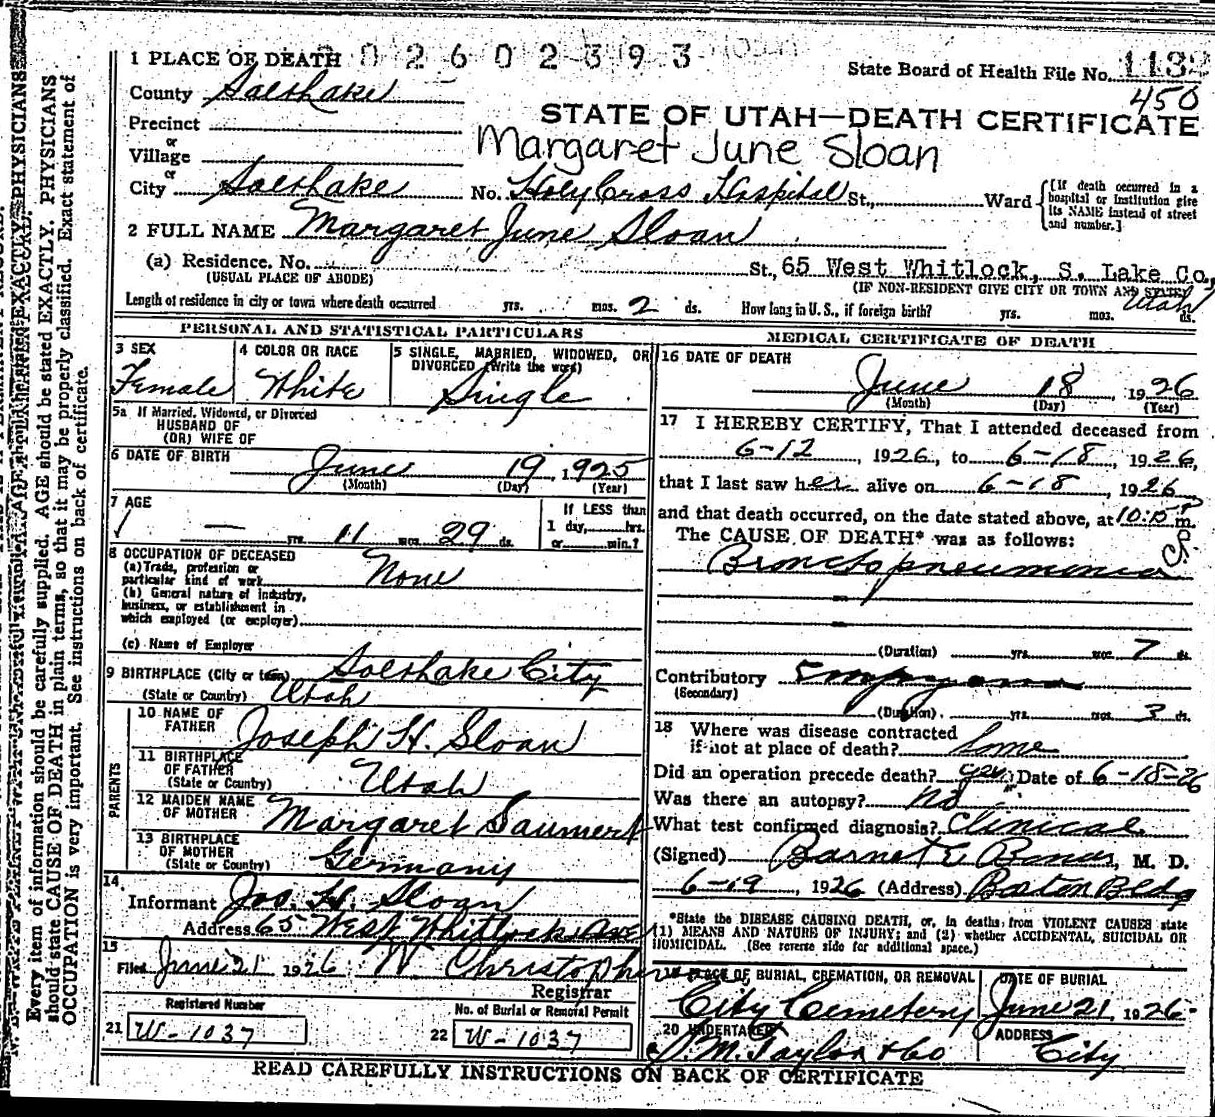 1 PLACE OF DEATH 0 2 6 0 2 3 9 3
State Board of Health File No. 1132
450
County Saltlake
STATE OF UTAH—DEATH CERTIFICATE
Precinct
or
Village
Margaret June Sloan
or
City Saltlake No. Holy Cross Hospital St., Ward
[If death occurred in a hospital or institution give its NAME instead of street and number.]
2 FULL NAME Margaret June Sloan
(a) Residence. No. St., 65 West Whitlock, S. Lake Co,
(USUAL PLACE OF ABODE) (IF NON-RESIDENT GIVE CITY OR TOWN AND STATE) Utah
Length of residence in city or town where death occurred yrs. mos. 2 ds. How long in U. S., if foreign birth? yrs. mos. ds.
PERSONAL AND STATISTICAL PARTICULARS
3 SEX
Female
4 COLOR OR RACE
White
5 SINGLE, MARRIED, WIDOWED, OR
DIVORCED (Write the word)
Single
5a If Married, Widowed, or Divorced
HUSBAND OF
(OR) WIFE OF
6 DATE OF BIRTH June 19, 1925
(Month) (Day) (Year)
7 AGE
— yrs. 11 mos. 29 ds.
If LESS than
1 day, hrs.
or min.?
8 OCCUPATION OF DECEASED
(a) Trade, profession or
particular kind of work None
(b) General nature of industry,
business, or establishment in
which employed (or employer)
(c) Name of Employer
9 BIRTHPLACE (City or town) Saltlake City
(State or Country) Utah
PARENTS
10 NAME OF
FATHER Joseph H. Sloan
11 BIRTHPLACE
OF FATHER
(State or Country) Utah
12 MAIDEN NAME
OF MOTHER Margaret
13 BIRTHPLACE
OF MOTHER
(State or Country) Germany
14
Informant Jos. H. Sloan
Address 65 West Whitlock Ave
15
Filed June 21 1926 W Christopherson
Registrar
Registered Number
21 W-1037
No. of Burial or Removal Permit
22 W-1037
MEDICAL CERTIFICATE OF DEATH
16 DATE OF DEATH
June 18, 1926
(Month) (Day) (Year)
17 I HEREBY CERTIFY, That I attended deceased from
6-12, 1926, to 6-18, 1926,
that I last saw her alive on 6-18, 1926
and that death occurred, on the date stated above, at 10:15 P m.
The CAUSE OF DEATH* was as follows:
Bronchopneumonia
(Duration) yrs. mos. 7 ds.
Contributory Empyema
(Secondary)
(Duration) yrs. mos. 3 ds.
18 Where was disease contracted
if not at place of death? home
Did an operation precede death? yes Date of 6-18-26
Was there an autopsy? no
What test confirmed diagnosis? Clinical
(Signed) Barnet E. M. D.
6-19, 1926 (Address) Boston Bldg
*State the DISEASE CAUSING DEATH, or, in deaths from VIOLENT CAUSES state
(1) MEANS AND NATURE OF INJURY; and (2) whether ACCIDENTAL, SUICIDAL OR
HOMICIDAL. (See reverse side for additional space.)
PLACE OF BURIAL, CREMATION, OR REMOVAL
City Cemetery
DATE OF BURIAL
June 21, 1926
20 UNDERTAKER
S. M. Taylor & Co
ADDRESS
City
READ CAREFULLY INSTRUCTIONS ON BACK OF CERTIFICATE
Every item of information should be carefully supplied. AGE should be stated EXACTLY. PHYSICIANS
should state CAUSE OF DEATH in plain terms, so that it may be properly classified. Exact statement of
OCCUPATION is very important. See instructions on back of certificate.